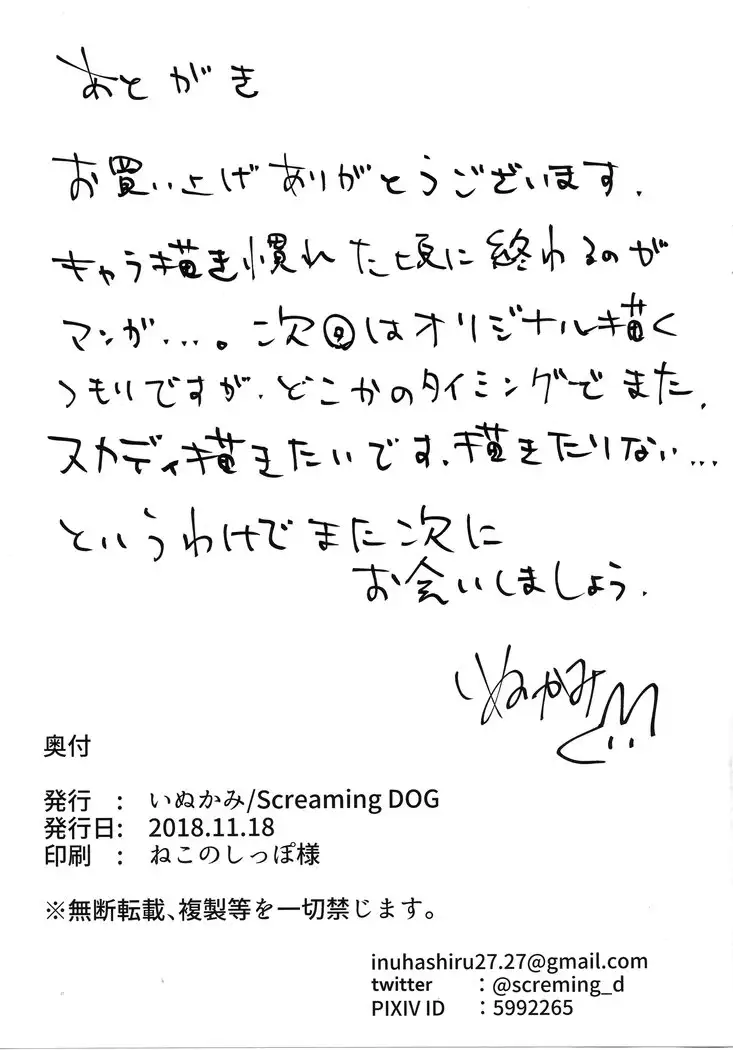 あとがき
お買い上げありがとうございます.
キャラ描き慣れた頃に終わるのが
マンガ…。次回はオリジナル描く
つもりですが.どこかのタイミングでまた,
スカディ描きたいです.描きたりない…
というわけでまた次に
お会いしましょう.
いぬかみ
奥付
発行　:　いぬかみ/Screaming DOG
発行日:　2018.11.18
印刷　:　ねこのしっぽ様
※無断転載､複製等を一切禁じます。
inuhashiru27.27@gmail.com
twitter　　: @screming_d
PIXIV ID　: 5992265